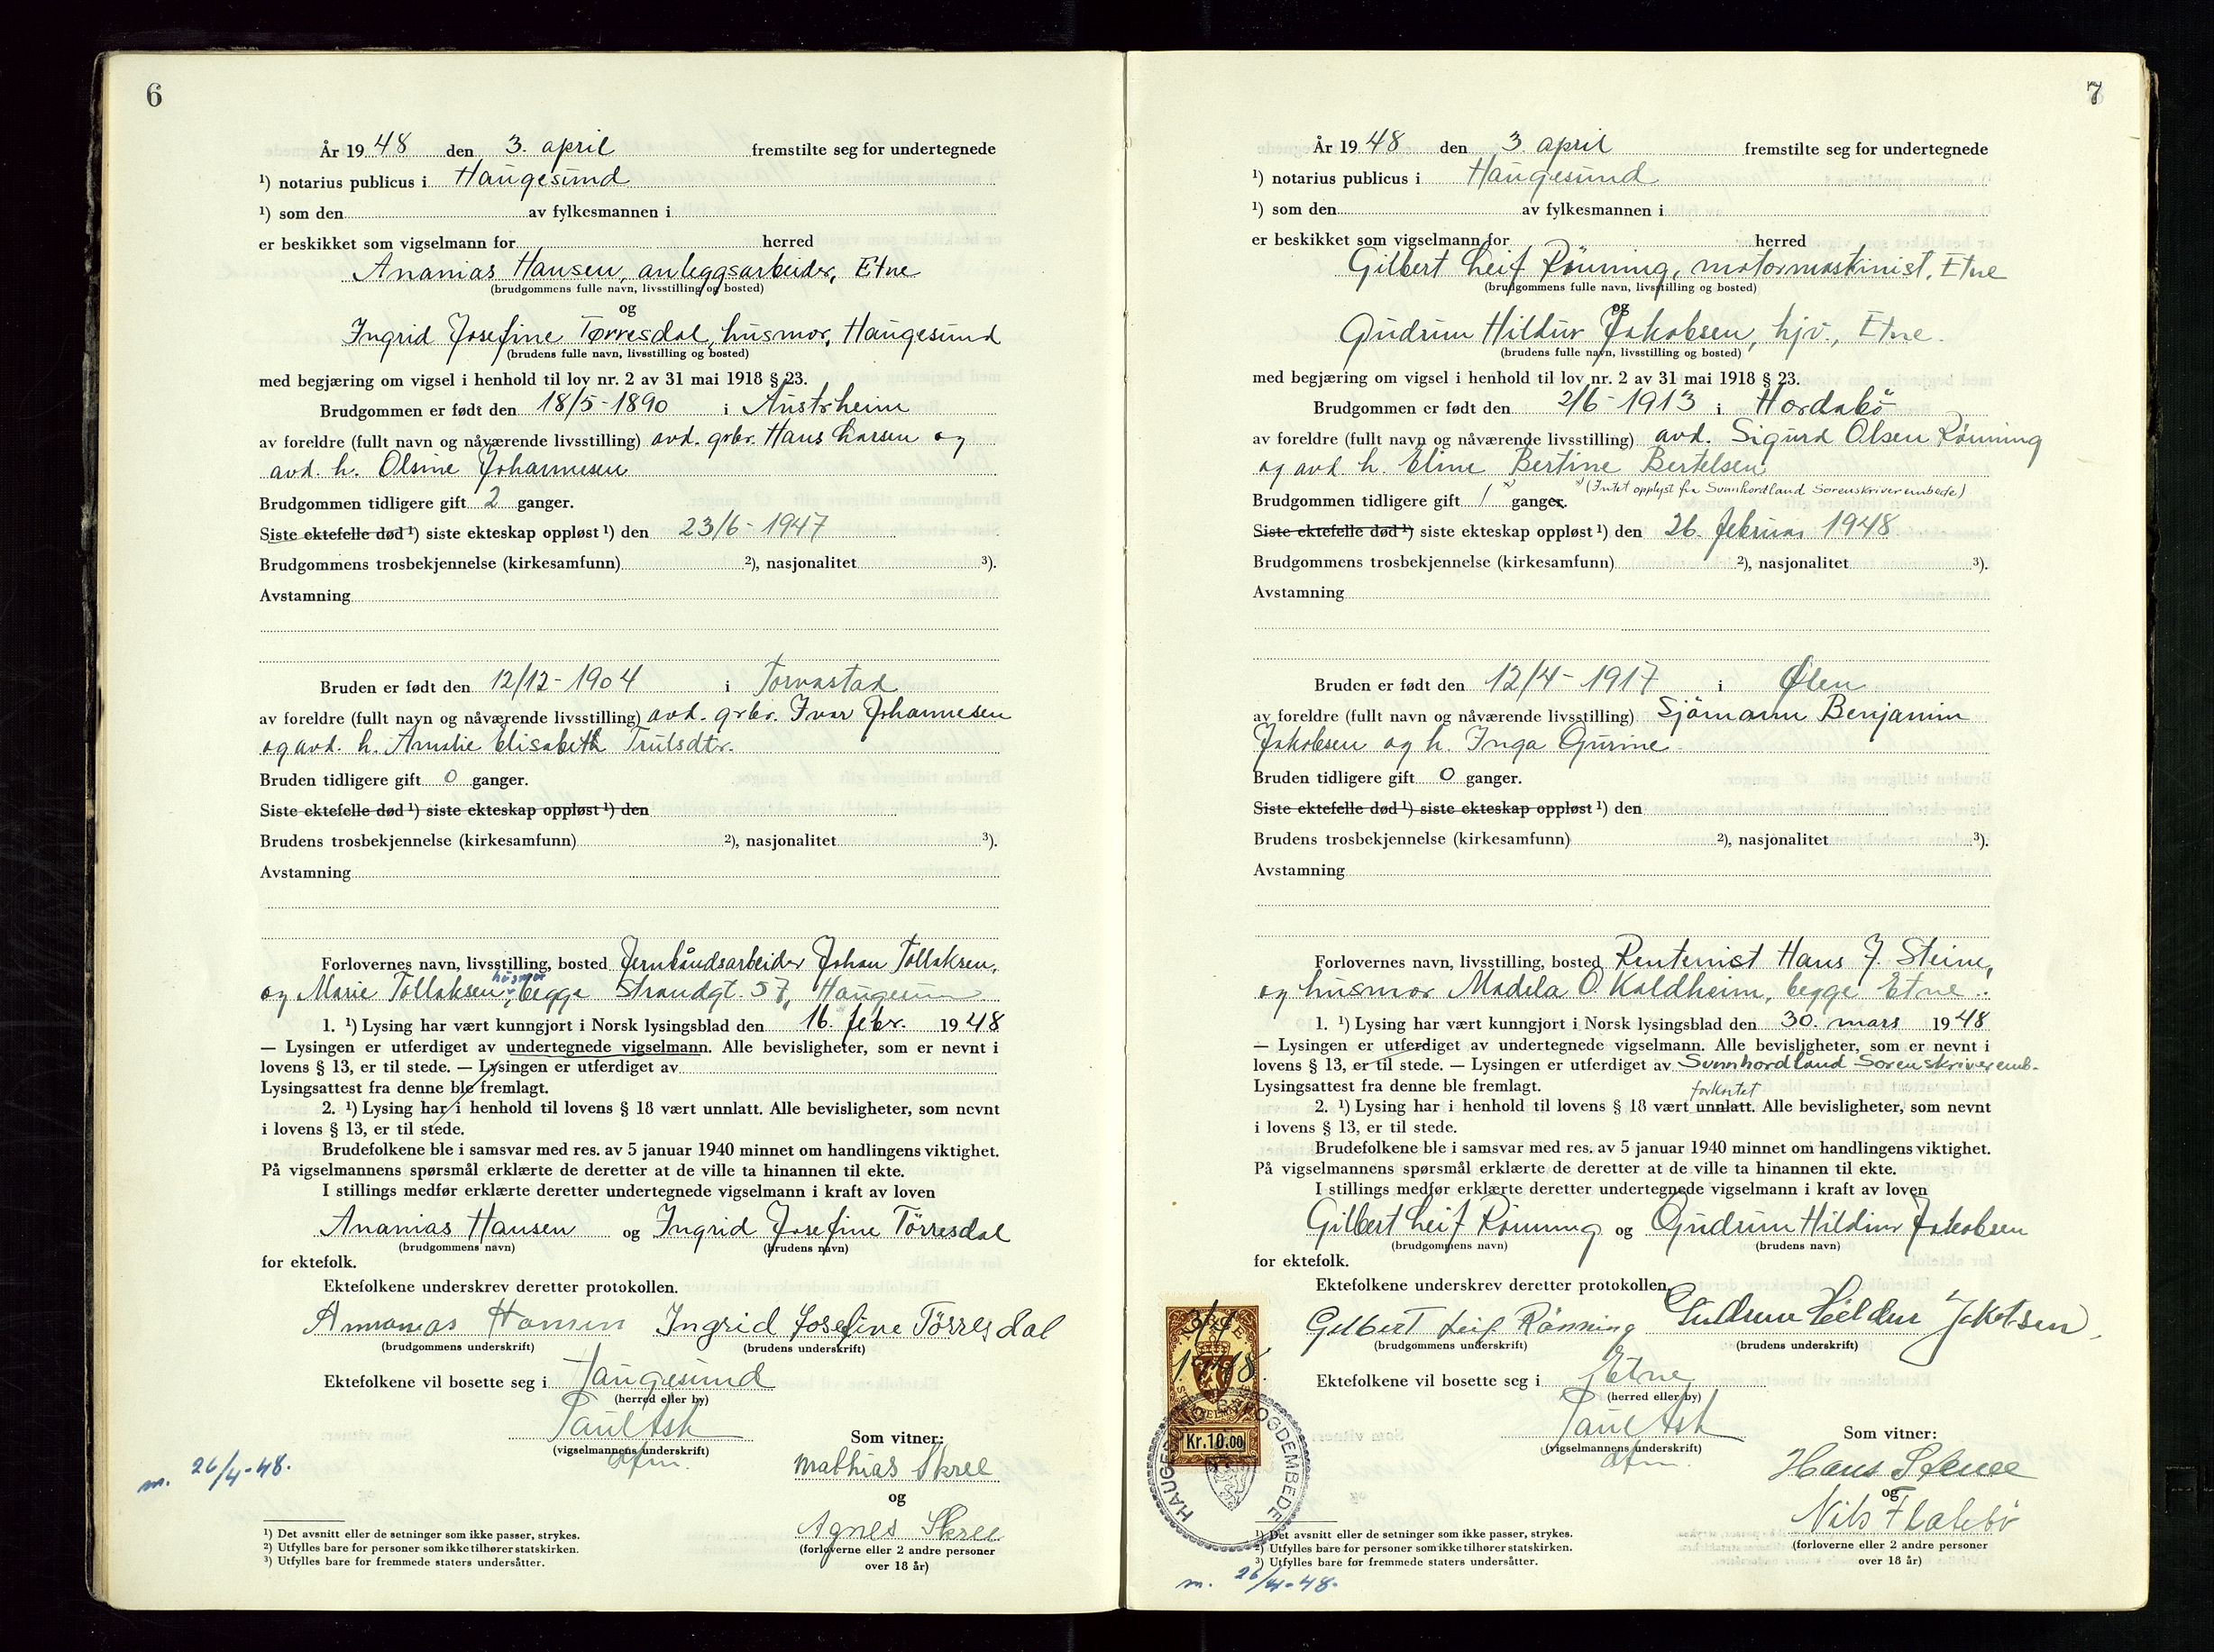 6
År 1948 den 3. april fremstilte seg for undertegnede
¹) notarius publicus i Haugesund
¹) som den av fylkesmannen i
er beskikket som vigselmann for herred
Ananias Hansen, anleggsarbeider, Etne
(brudgommens fulle navn, livsstilling og bosted)
og
Ingrid Josefine Tørresdal, husmor, Haugesund
(brudens fulle navn, livsstilling og bosted)
med begjæring om vigsel i henhold til lov nr. 2 av 31 mai 1918 § 23.
Brudgommen er født den 18/5-1890 i Austrheim
av foreldre (fullt navn og nåværende livsstilling) avd. grbr. Hans Larsen og
avd. h. Olsine Johannesen
Brudgommen tidligere gift 2 ganger.
Siste ektefelle død ¹) siste ekteskap oppløst ¹) den 23/6-1947
Brudgommens trosbekjennelse (kirkesamfunn) ²), nasjonalitet ³).
Avstamning
Bruden er født den 12/12-1904 i Torvastad
av foreldre (fullt navn og nåværende livsstilling) avd. grbr. Ivar Johannesen
og avd. h. Amalie Elisabeth Trulsdtr.
Bruden tidligere gift 0 ganger.
Siste ektefelle død ¹) siste ekteskap oppløst ¹) den
Brudens trosbekjennelse (kirkesamfunn) ²), nasjonalitet ³).
Avstamning
Forlovernes navn, livsstilling, bosted Jernbåndsarbeider Johan Tollaksen,
husmor
og Marie Tollaksen, begge Strandgt. 57, Haugesun
1. ¹) Lysing har vært kunngjort i Norsk lysingsblad den 16. febr. 1948
— Lysingen er utferdiget av undertegnede vigselmann. Alle bevisligheter, som er nevnt i
lovens § 13, er til stede. — Lysingen er utferdiget av
Lysingsattest fra denne ble fremlagt.
2. ¹) Lysing har i henhold til lovens § 18 vært unnlatt. Alle bevisligheter, som nevnt
i lovens § 13, er til stede.
Brudefolkene ble i samsvar med res. av 5 januar 1940 minnet om handlingens viktighet.
På vigselmannens spørsmål erklærte de deretter at de ville ta hinannen til ekte.
I stillings medfør erklærte deretter undertegnede vigselmann i kraft av loven
Ananias Hansen og Ingrid Josefine Törresdal
(brudgommens navn) (brudens navn)
for ektefolk.
Ektefolkene underskrev deretter protokollen.
Annanias Hansen Ingrid Josefine Törresdal
(brudgommens underskrift) (brudens underskrift)
Ektefolkene vil bosette seg i Haugesund
(herred eller by)
Paul Ask
(vigselmannens underskrift)
afm.
Som vitner:
Mathias Skree
og
Agnes Skree
(forloverne eller 2 andre personer
over 18 år)
m. 26/4-48.
¹) Det avsnitt eller de setninger som ikke passer, strykes.
²) Utfylles bare for personer som ikke tilhører statskirken.
³) Utfylles bare for fremmede staters undersåtter.
7
År 1948 den 3. april fremstilte seg for undertegnede
¹) notarius publicus i Haugesund
¹) som den av fylkesmannen i
er beskikket som vigselmann for herred
Gilbert Leif Rönning, motormaskinist, Etne
(brudgommens fulle navn, livsstilling og bosted)
og
Gudrun Hildur Jakobsen, hjv., Etne.
(brudens fulle navn, livsstilling og bosted)
med begjæring om vigsel i henhold til lov nr. 2 av 31 mai 1918 § 23.
Brudgommen er født den 2/6-1913 i Hordabö
av foreldre (fullt navn og nåværende livsstilling) avd. Sigurd Olsen Rönning
og avd. h. Eline Bertine Bertelsen
Brudgommen tidligere gift 1 x) ganger. x) (Intet opplyst fra Sunnhordland Sorenskriverembede)
Siste ektefelle død ¹) siste ekteskap oppløst ¹) den 26. februar 1948
Brudgommens trosbekjennelse (kirkesamfunn) ²), nasjonalitet ³).
Avstamning
Bruden er født den 12/4-1917 i Ølen
av foreldre (fullt navn og nåværende livsstilling) Sjömann Benjamin
Jakobsen og h. Inga Gurine.
Bruden tidligere gift 0 ganger.
Siste ektefelle død ¹) siste ekteskap oppløst ¹) den
Brudens trosbekjennelse (kirkesamfunn) ²), nasjonalitet ³).
Avstamning
Forlovernes navn, livsstilling, bosted Rentenist Hans J. Steine,
og husmor Madela O. Kaldheim, begge Etne.
1. ¹) Lysing har vært kunngjort i Norsk lysingsblad den 30. mars 1948
— Lysingen er utferdiget av undertegnede vigselmann. Alle bevisligheter, som er nevnt i
lovens § 13, er til stede. — Lysingen er utferdiget av Sunnhordland Sorenskriveremb.
Lysingsattest fra denne ble fremlagt.
forkortet
2. ¹) Lysing har i henhold til lovens § 18 vært unnlatt. Alle bevisligheter, som nevnt
i lovens § 13, er til stede.
Brudefolkene ble i samsvar med res. av 5 januar 1940 minnet om handlingens viktighet.
På vigselmannens spørsmål erklærte de deretter at de ville ta hinannen til ekte.
I stillings medfør erklærte deretter undertegnede vigselmann i kraft av loven
Gilbert Leif Rönning og Gudrun Hildur Jakobsen
(brudgommens navn) (brudens navn)
for ektefolk.
Ektefolkene underskrev deretter protokollen.
Gilbert Leif Rönning Gudrun Hildur Jakobsen.
(brudgommens underskrift) (brudens underskrift)
Ektefolkene vil bosette seg i Etne
(herred eller by)
Paul Ask
(vigselmannens underskrift)
afm.
Som vitner:
Hans Steine
og
Nils Flatebö
(forloverne eller 2 andre personer
over 18 år)
NORGE
3/4
1948.
Kr. 10.00
HAUGESUND BYFOGDEMBEDE
¹) Det avsnitt eller de setninger som ikke passer, strykes.
²) Utfylles bare for personer som ikke tilhører statskirken.
³) Utfylles bare for fremmede staters undersåtter.
m. 26/4-48.